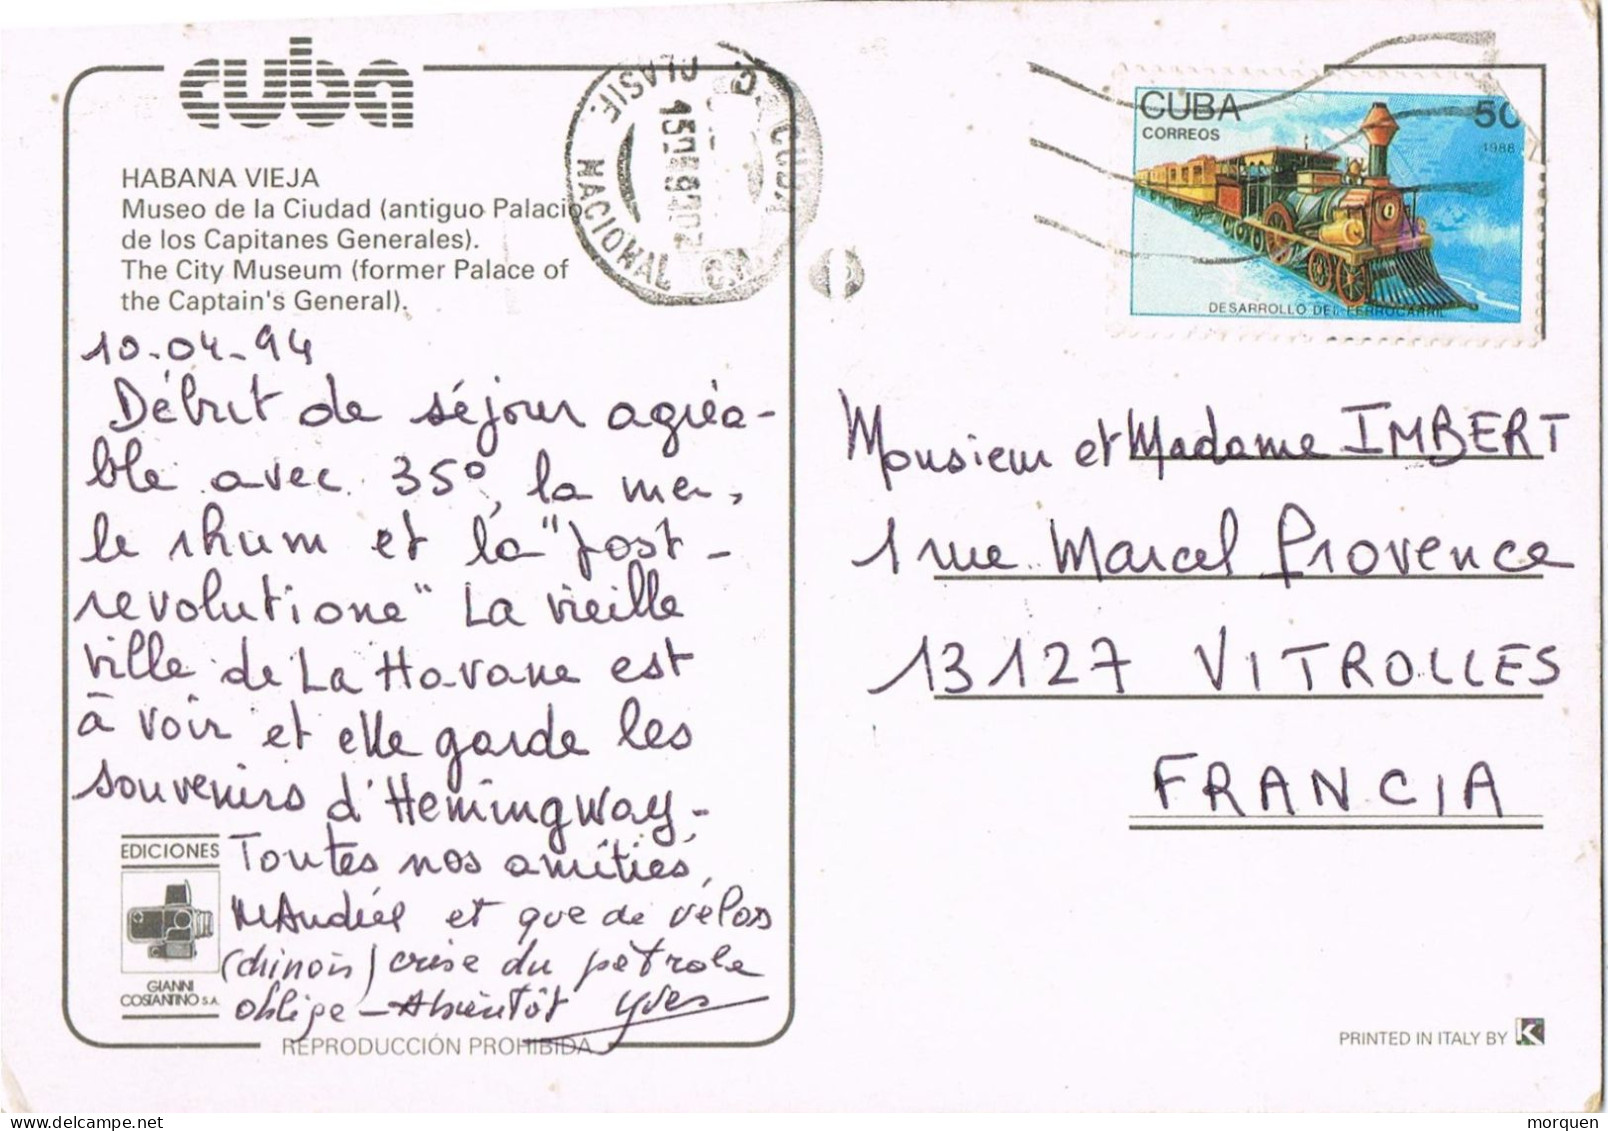 cuba
HABANA VIEJA
Museo de la Ciudad (antiguo Palacio
de los Capitanes Generales).
The City Museum (former Palace of
the Captain's General).
10-04-94
Début de séjour agréa-
ble avec 35°, la mer,
le rhum et la "post-
revolutione" La vieille
ville de La Havane est
à voir et elle garde les
souvenirs d'Hemingway-
Toutes nos amitiés,
et que de vélos
(chinois) crise du pétrole
oblige - A bientôt Yves
EDICIONES
GIANNI
COSTANTINO S.A.
REPRODUCCIÓN PROHIBIDA
CLASIF. NACIONAL
C. CUBA
CUBA
CORREOS
50
1988
DESARROLLO DEL FERROCARRIL
Monsieur et Madame IMBERT
1 rue Marcel Provence
13127 VITROLLES
FRANCIA
PRINTED IN ITALY BY K